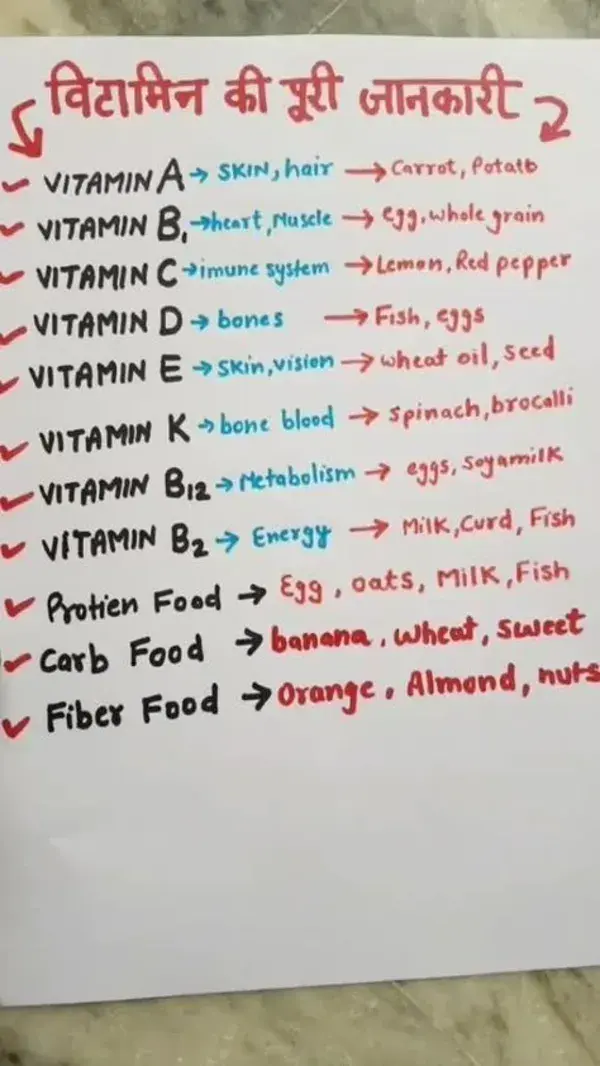 विटामिन की पूरी जानकारी
VITAMIN A → SKIN, hair → Carrot, Potato
VITAMIN B1 → heart, Muscle → egg, whole grain
VITAMIN C → imune system → Lemon, Red pepper
VITAMIN D → bones → Fish, eggs
VITAMIN E → Skin, vision → wheat oil, Seed
VITAMIN K → bone blood → spinach, brocalli
VITAMIN B12 → Metabolism → eggs, Soyamilk
VITAMIN B2 → Energy → Milk, Curd, Fish
Protien Food → Egg, oats, Milk, Fish
Carb Food → banana, wheat, sweet
Fiber Food → Orange, Almond, nuts